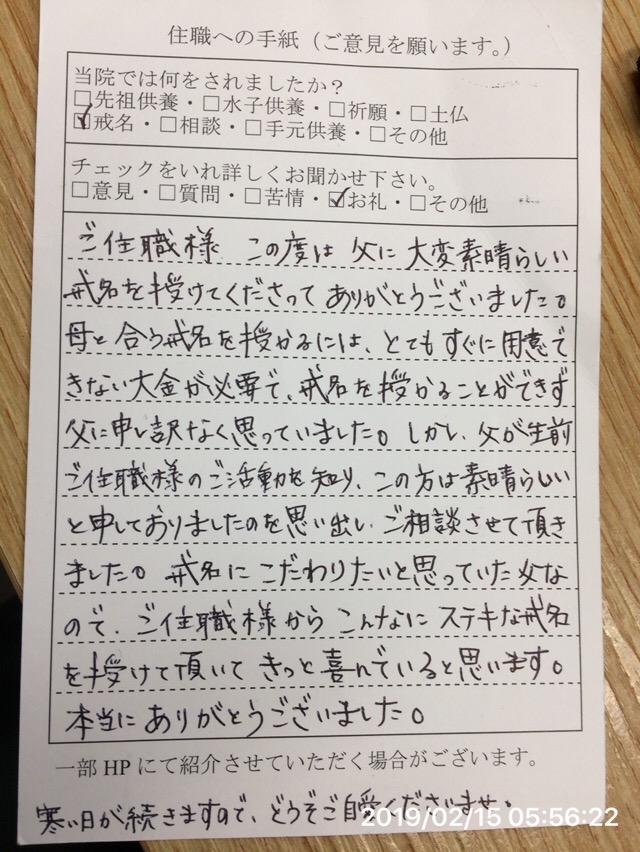 住職への手紙（ご意見を願います。）
当院では何をされましたか？
□先祖供養・□水子供養・□祈願・□土仏
☑戒名・□相談・□手元供養・□その他
チェックをいれ詳しくお聞かせ下さい。
□意見・□質問・□苦情・☑お礼・□その他
ご住職様 この度は 父に 大変素晴らしい
戒名を授けてくださって ありがとうございました。
母と合う戒名を授かるには、とてもすぐに用意で
きない大金が必要で、戒名を授かることができず
父に申し訳なく思っていました。しかし、父が生前
ご住職様のご活動を知り、この方は素晴らしい
と申しておりましたのを思い出し、ご相談させて頂き
ました。戒名にこだわりたいと思っていた父な
ので、ご住職様から こんなに ステキな戒名
を授けて頂いて きっと喜んでいると思います。
本当にありがとうございました。
一部HPにて紹介させていただく場合がございます。
寒い日が続きますので、どうぞご自愛くださいませ。
2019/02/15 05:56:22